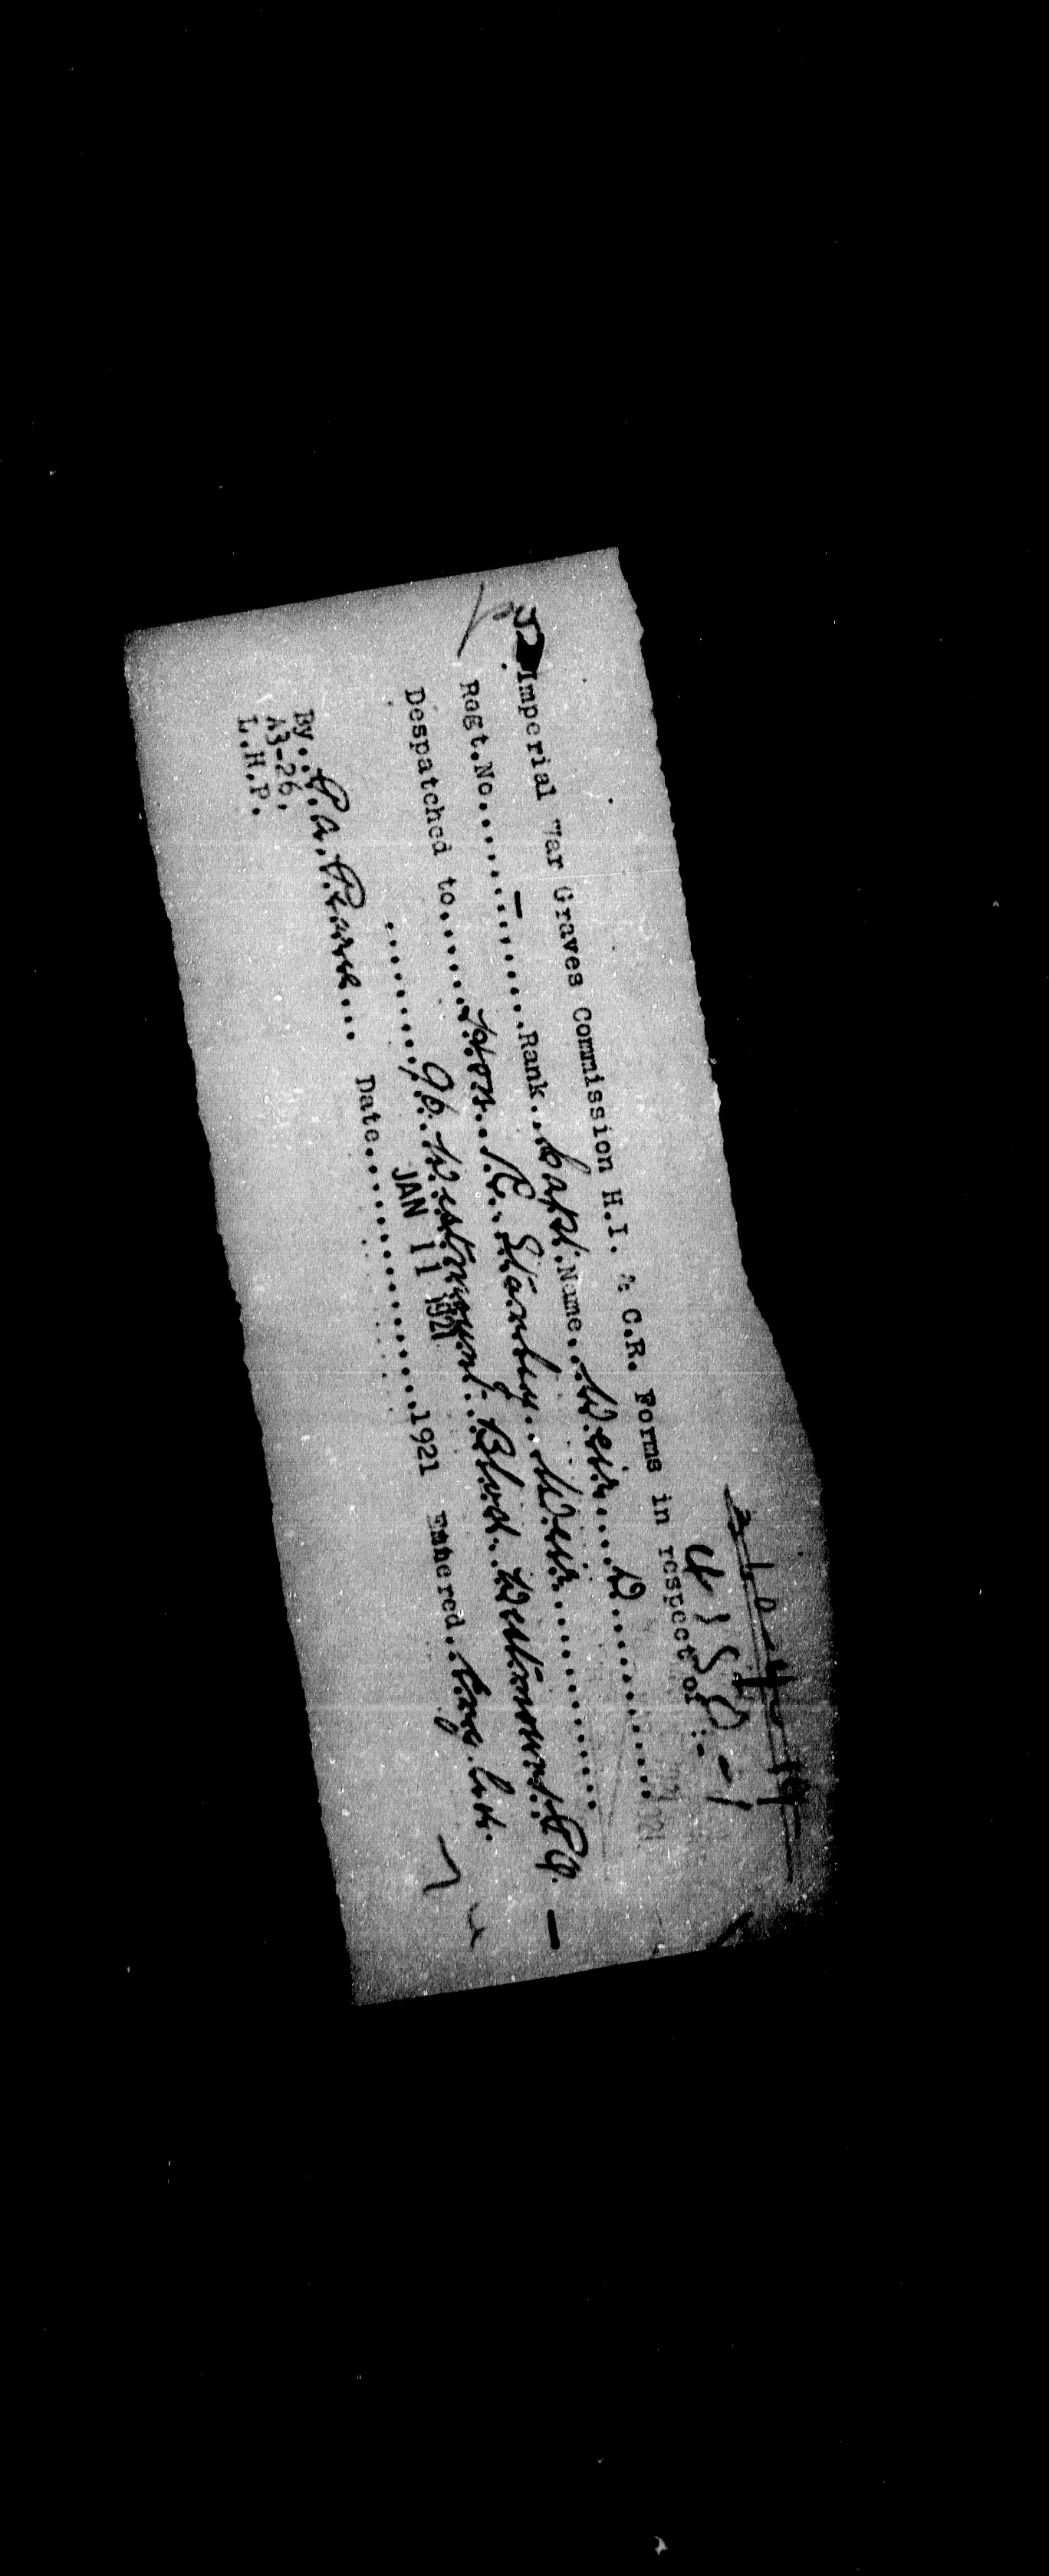 4150-1
Imperial War Graves Commission H.I. & C.R. Forms in respect of :-
Regt.No..........—..........Rank...Capt..Name...Weir....D...........
Despatched to.......Hon..R. Stanley..Weir..............
96. Westmount. Blvd. Westmount. P.Q. —
JAN 11 1921
By... Date.....................1921 Entered.
A3-26.
L.H.P.